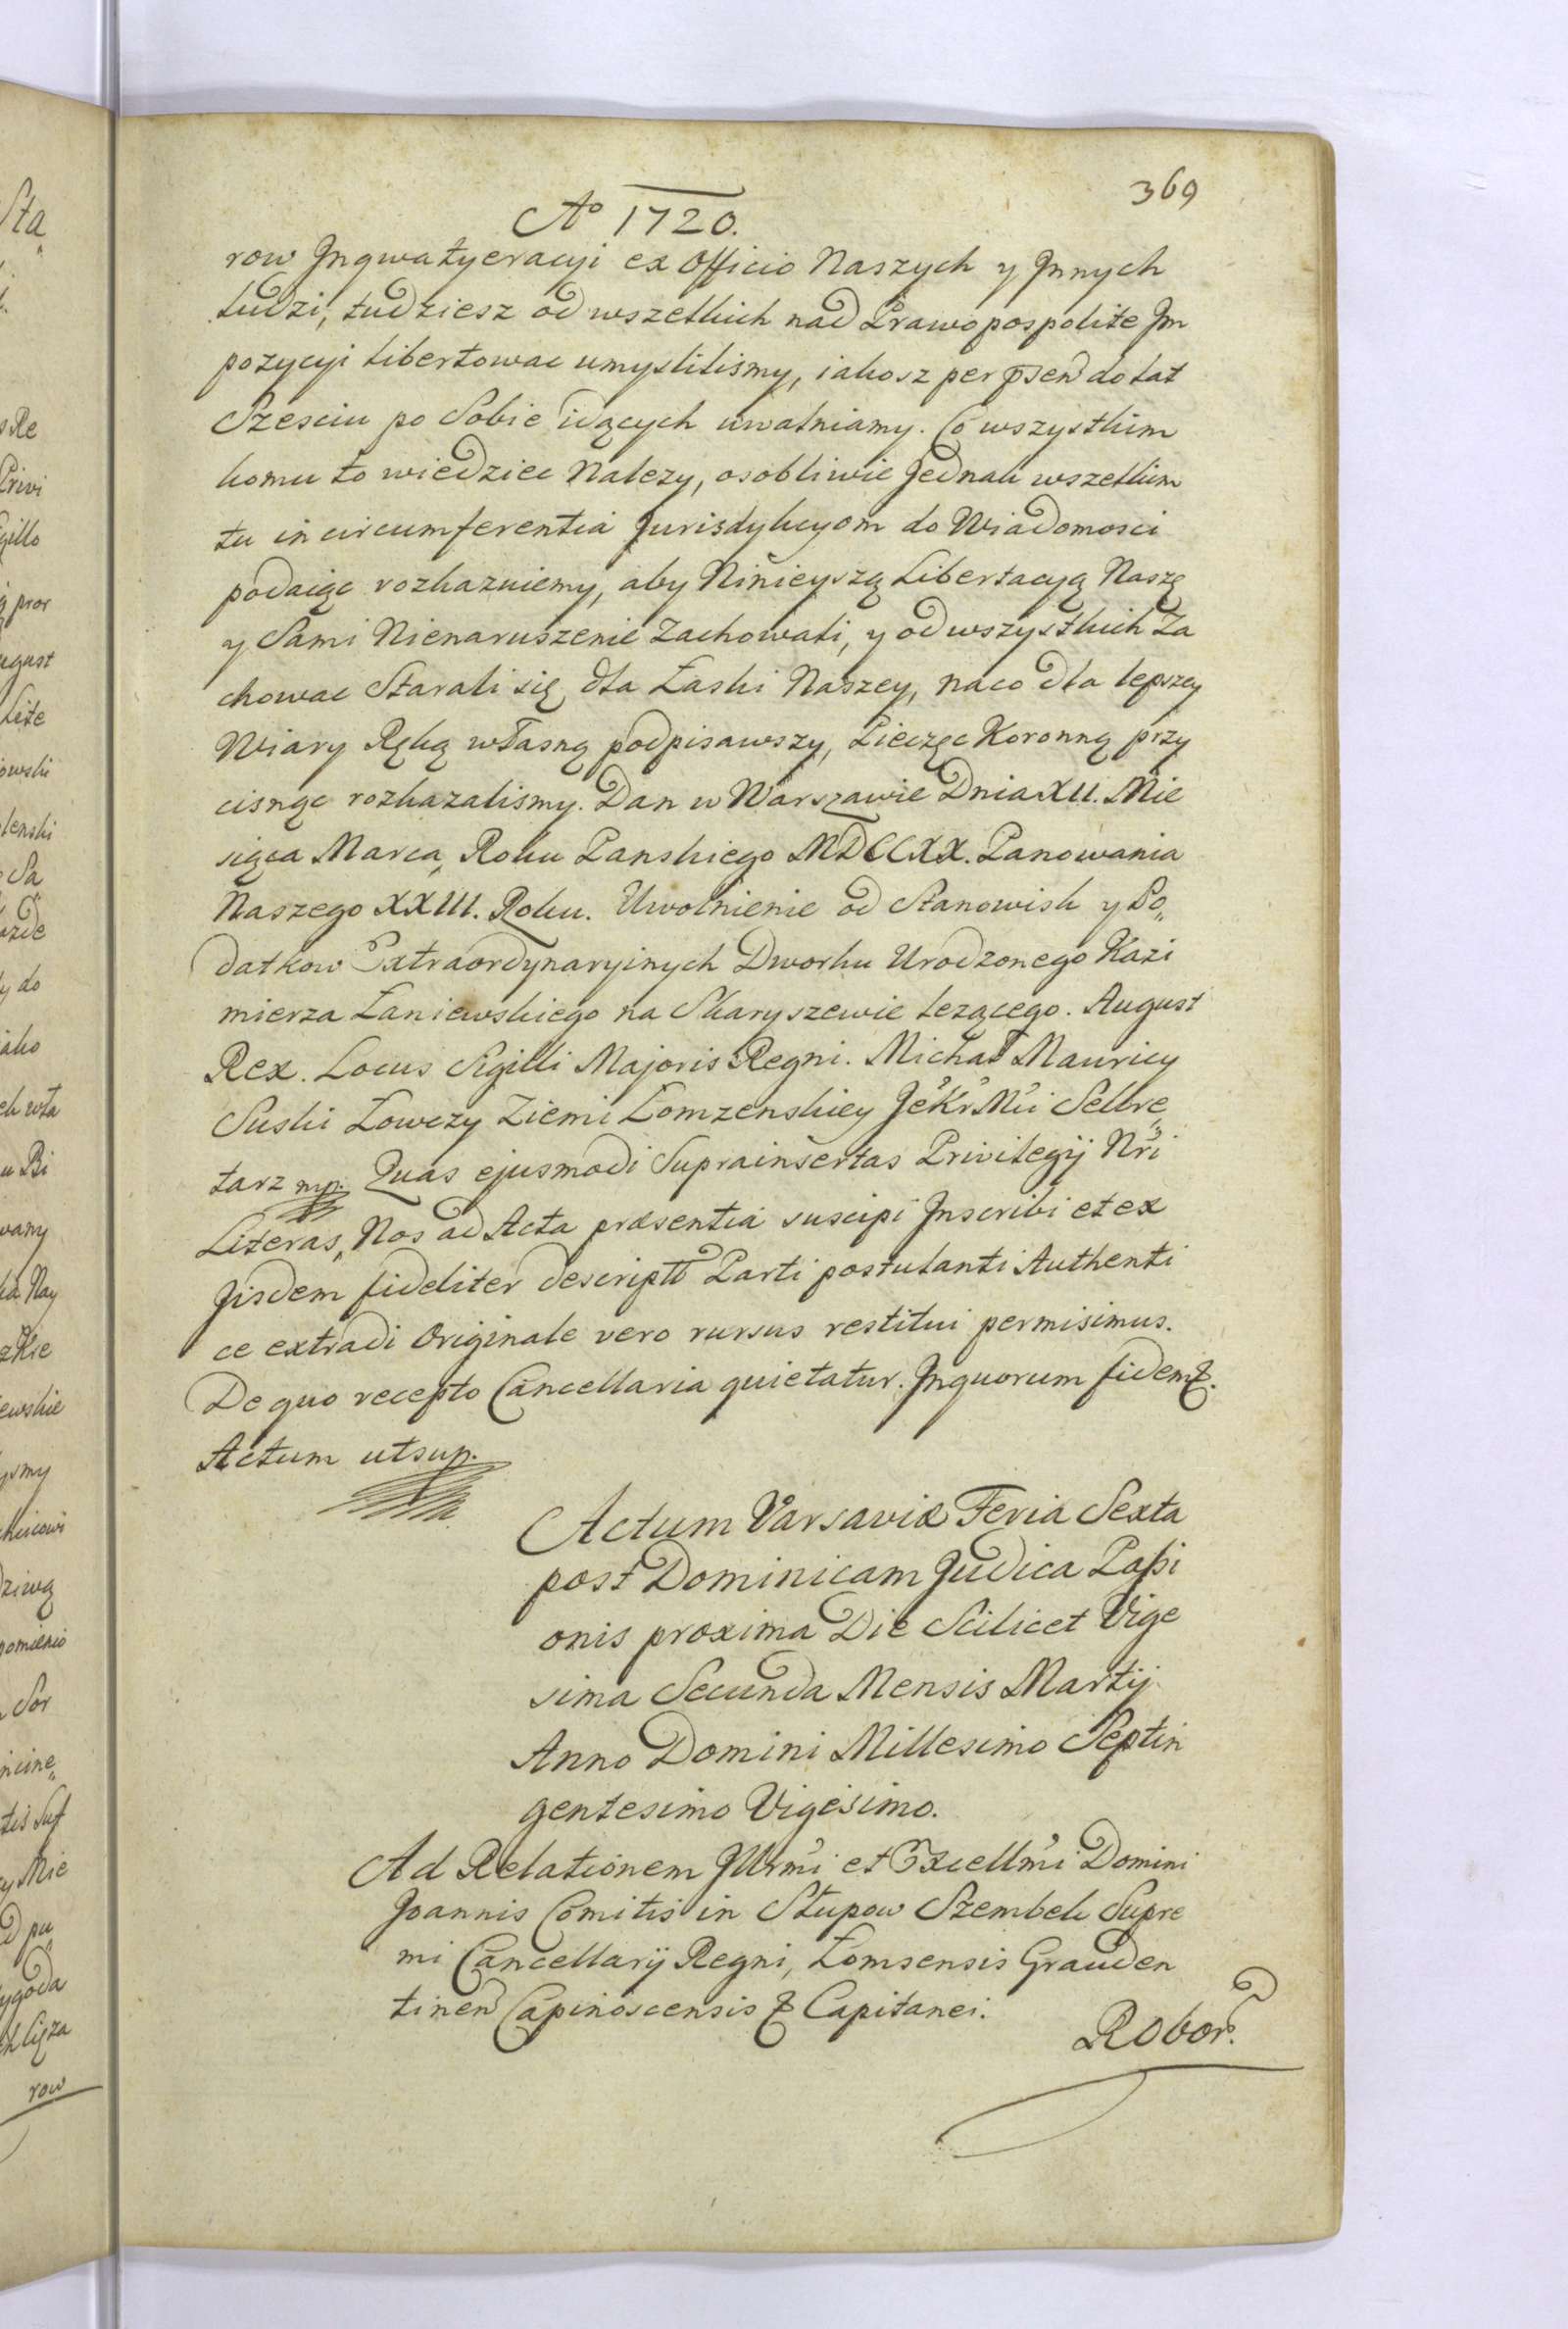 369
Aº 1720.
row Ingwatyeracyi ex Officio Naszych y Innych
ludzi, tudziesz od wszelkich nad Prawo pospolite Im
pozycyi libertowac umyslilismy, iakosz per psen do lat
Szesciu po Sobie idących uwalniamy. Co wszystkim
komu to wiedziec Nalezy, osobliwie Jednak wszelkim
tu in circumferentia Jurisdykcyom do Wiadomosci
podaiąc rozkazuiemy, aby Ninieyszą Libertacyą Naszę
y Sami Nienaruszenie Zachowali, y od wszystkich Za
chowac Starali się, dla Łaski Naszey, naco dla lepszey
Wiary Ręką własną podpisawszy, Pieczęc Koronną przy
cisnąc rozkazalismy. Dan w Warszawie Dnia XII. Mie
siąca Marca, Roku Panskiego MDCCXX. Panowania
Naszego XXIII. Roku. Uwolnienie od Stanowisk y Po„
datkow Extraordynaryinych Dworku Urodzonego Kazi
mierza Łaniewskiego na Skaryszewie lezącego. August
Rex. Locus Sigilli Majoris Regni. Michał Mauricy
Suski Łowczy Ziemi Łomzenskiey JeKrMci Sekre„
tarz mp. Quas ejusmodi Suprainsertas Privilegij Nri
Literas, Nos ad Acta præsentia suscipi Inscribi et ex
Iisdem fideliter descriptt Parti postulanti Authenti
ce extradi Originale vero rursus restitui permisimus.
De quo recepto Cancellaria quietatur. Inquorum fidem &.
Actum utsup.
Actum Varsaviæ Feria Sexta
post Dominicam Judica Paßi
onis proxima Die Scilicet Vige
sima Secunda Mensis Martij
Anno Domini Millesimo Septin
gentesimo Vigesimo.
Ad Relationem Illrmi et Excellmi Domini
Joannis Comitis in Słupow Szembek Supre
mi Cancellarij Regni, Łomsensis Grauden
tinen Capinoscensis & Capitanei.
Robor.